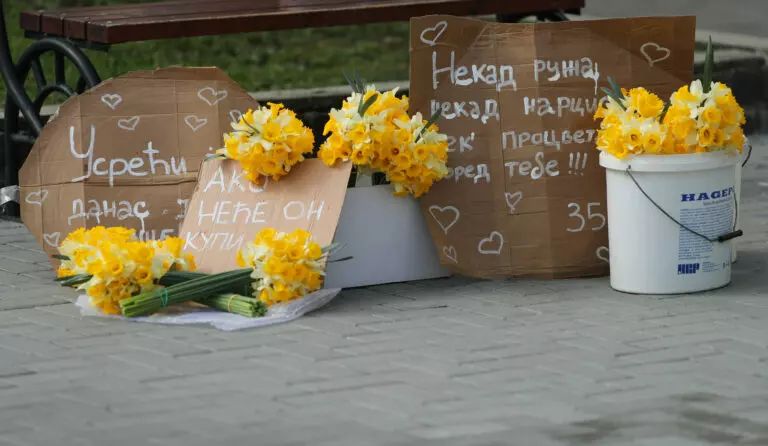 Усрећи
данас
АКО
НЕЋЕ ОН
КУПИ
Некад ружа,
некад нарци
нек' процвет
пред тебе !!!
35
HAGER